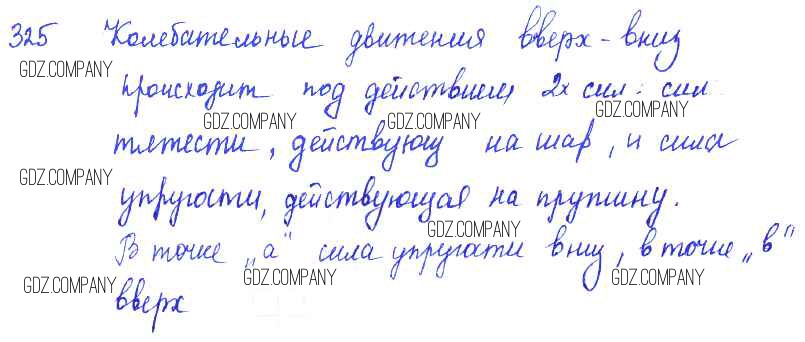 325 Колебательные движения вверх - вниз
GDZ.COMPANY
происходит под действием 2х сил: сил
GDZ.COMPANY GDZ.COMPANY GDZ.COMPANY
тяжести, действующ на шар, и сила
GDZ.COMPANY
упругости, действующая на пружину.
GDZ.COMPANY
В точке „а“ сила упругости вниз, в точке „в“
GDZ.COMPANY GDZ.COMPANY GDZ.COMPANY
вверх